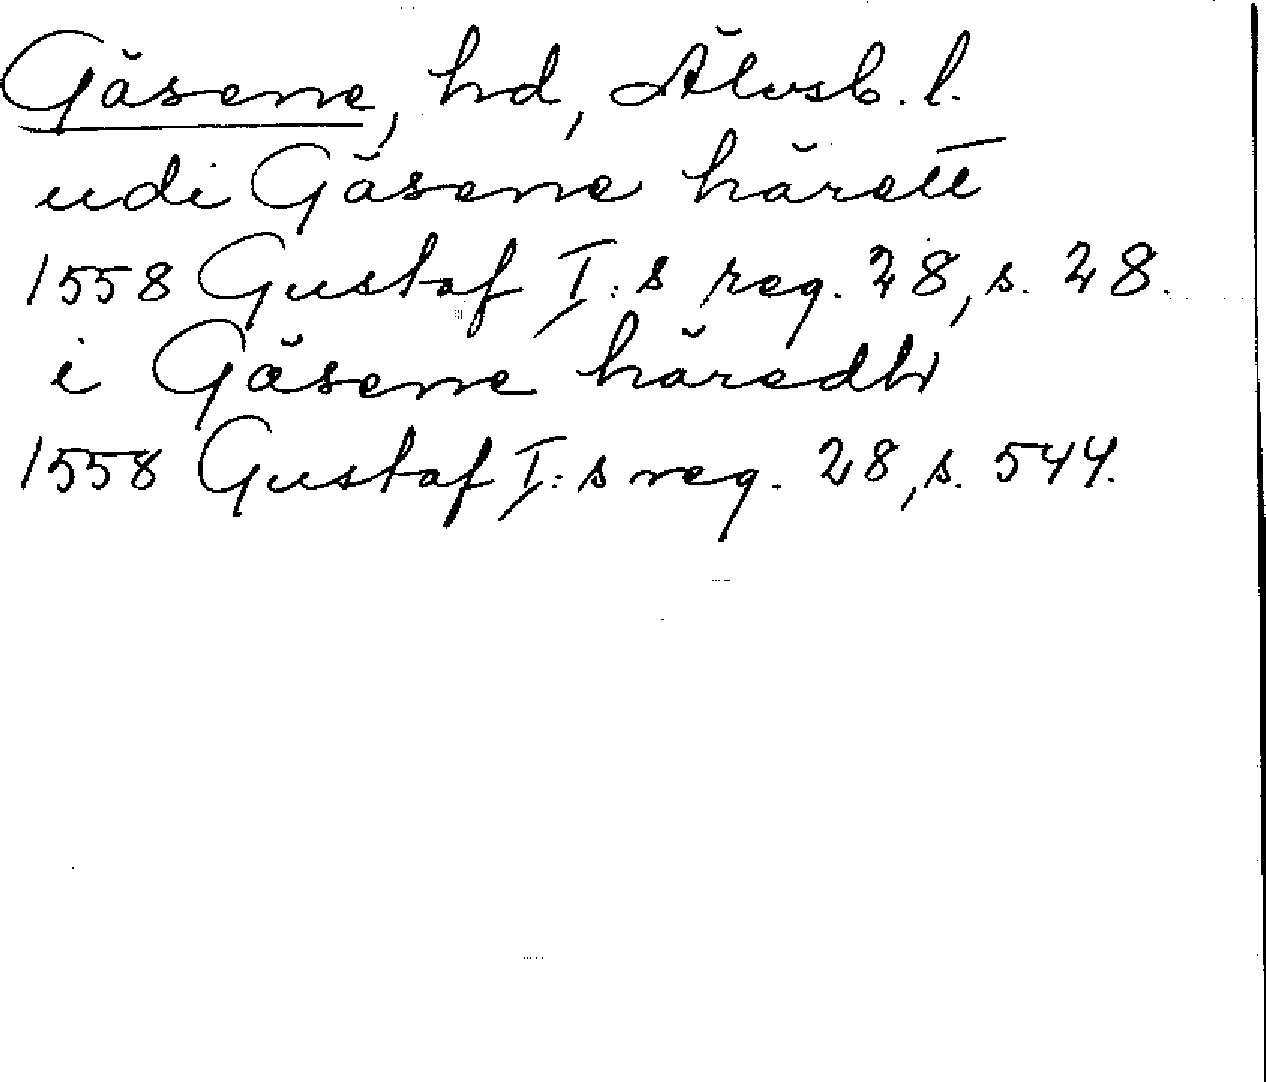 Gäsene, hd, Älvsb. l.
udi Gäsene härett
1558 Gustaf I:s reg. 28, s. 28.
i Gäsene häredh
1558 Gustaf I:s reg. 28, s. 544.